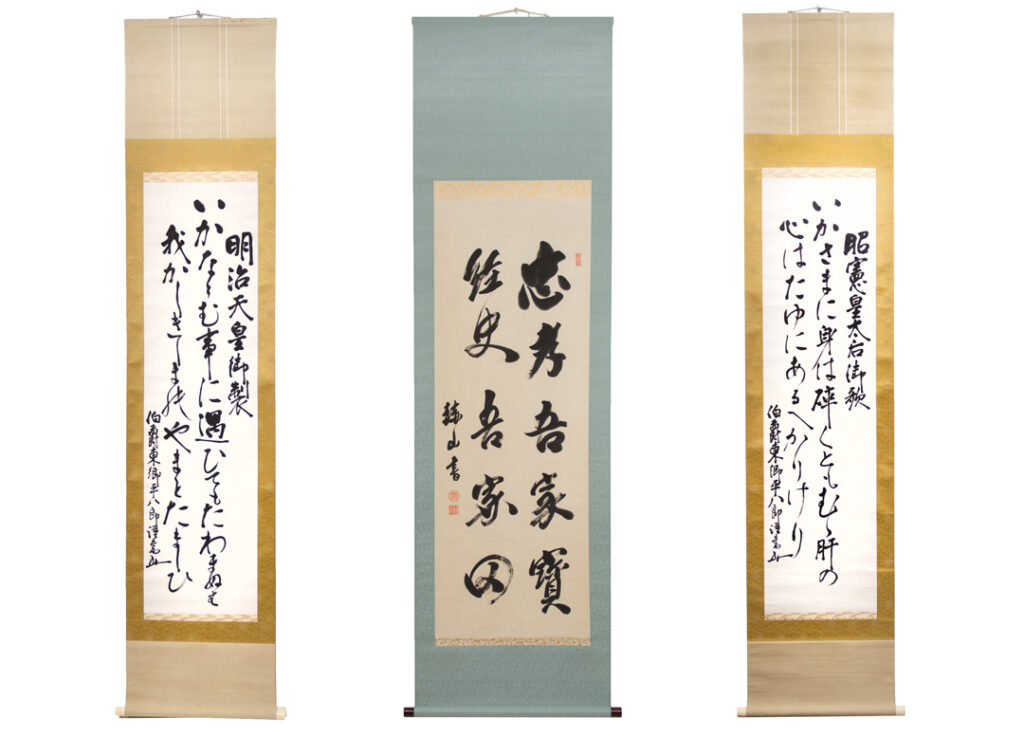 明治天皇御製
いかならむ事に遇ひてもたわまぬは
我がしきしまのやまとたましひ
伯爵東郷平八郎謹書
忠孝吾家寶
経史吾家田
山書
昭憲皇太后御歌
いかさまに身は砕くともむら肝の
心はたゆにあるへかりけり
伯爵東郷平八郎謹書